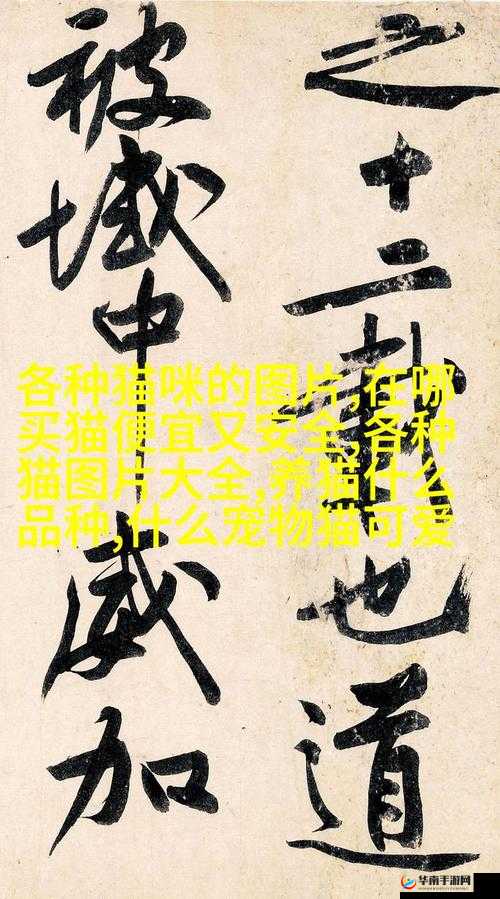 之十二載也道
被域中威加
各种猫咪的图片,在哪
买猫便宜又安全,各种
猫图片大全,养猫什么
品种,什么宠物猫可爱
华南手游网